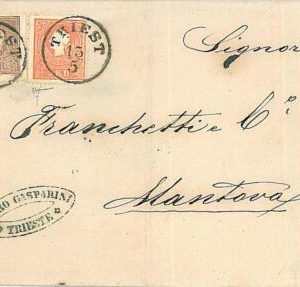 TRIEST
13
5
EST
Signor
Franchetti e Co.
Mantova
RO GASPARINI
TRIESTE